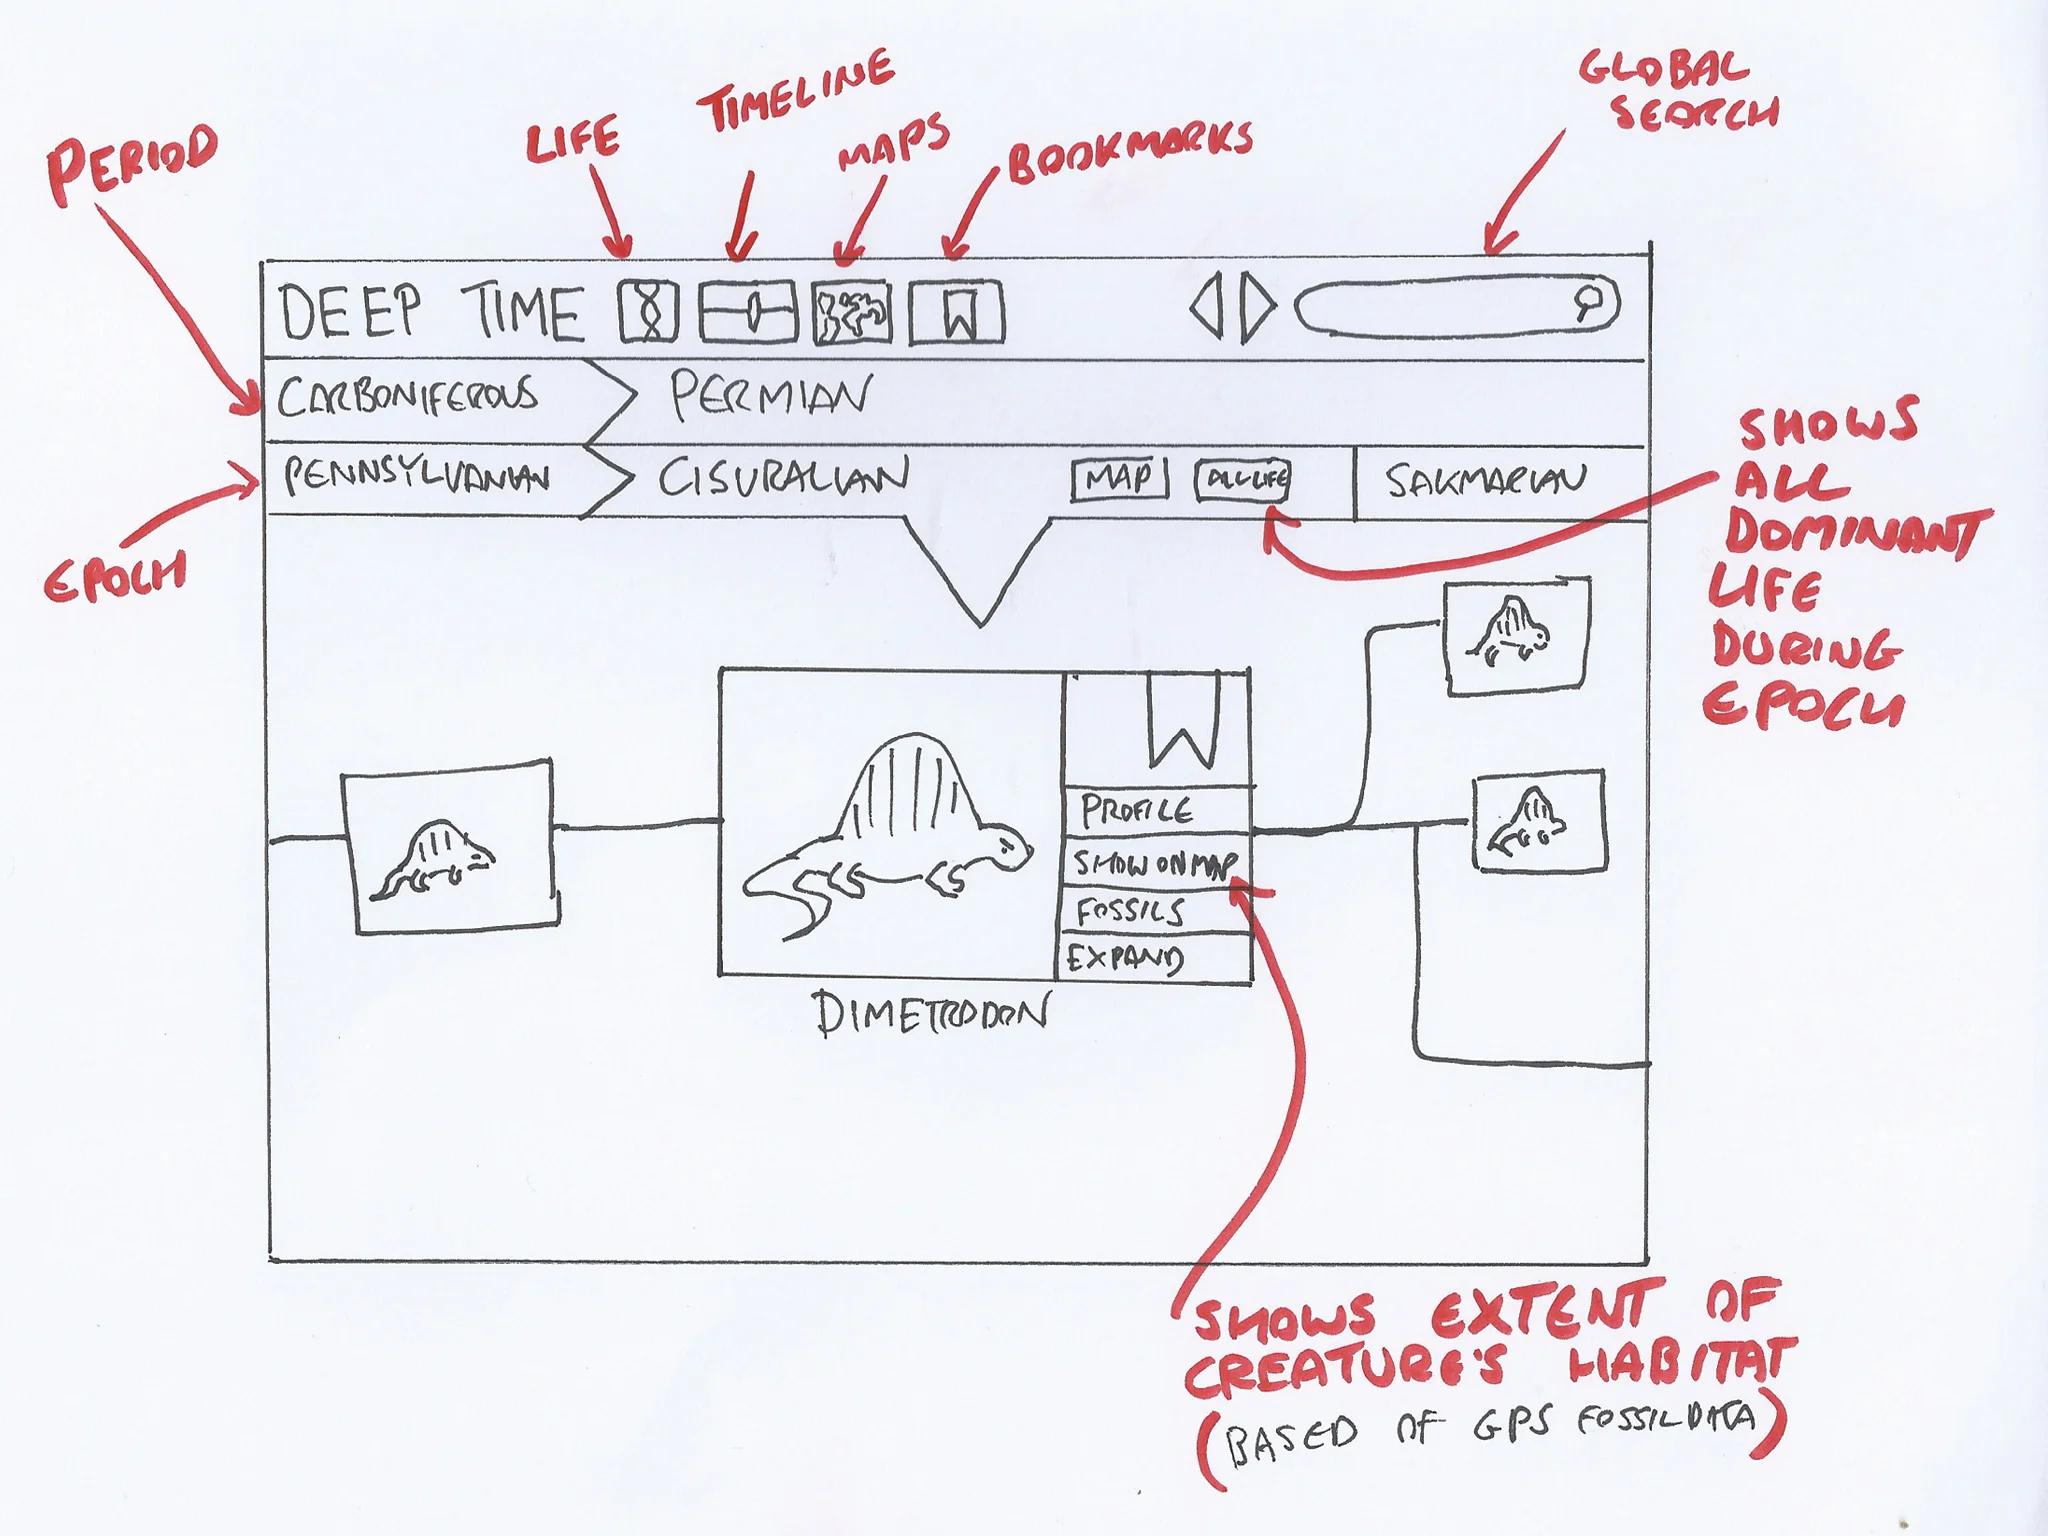 GLOBAL
SEARCH
TIMELINE
LIFE
MAPS
BOOKMARKS
PERIOD
DEEP TIME
CARBONIFEROUS
PERMIAN
PENNSYLVANIAN
CISURALIAN
MAP
ALL LIFE
SAKMARIAN
EPOCH
SHOWS
ALL
DOMINANT
LIFE
DURING
EPOCH
PROFILE
SHOW ON MAP
FOSSILS
EXPAND
DIMETRODON
SHOWS EXTENT OF
CREATURE'S HABITAT
(BASED OF GPS FOSSIL DATA)